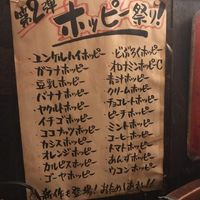 第2弾
ホッピー祭り!
・ユンケルハイホッピー
・ガラナホッピー
・豆乳ホッピー
・バナナホッピー
・ヤクルトホッピー
・イチゴホッピー
・ココナッツホッピー
・カシスホッピー
・オレンジホッピー
・カルピスホッピー
・ゴーヤホッピー
・どぶろくホッピー
・オロナミンホッピーC
・青汁ホッピー
・クリームホッピー
・チョコレートホッピー
・ピーチホッピー
・ミントホッピー
・コーヒーホッピー
・トマトホッピー
・あんずホッピー
・ウコンホッピー
新作も登場!おためしあれ!!